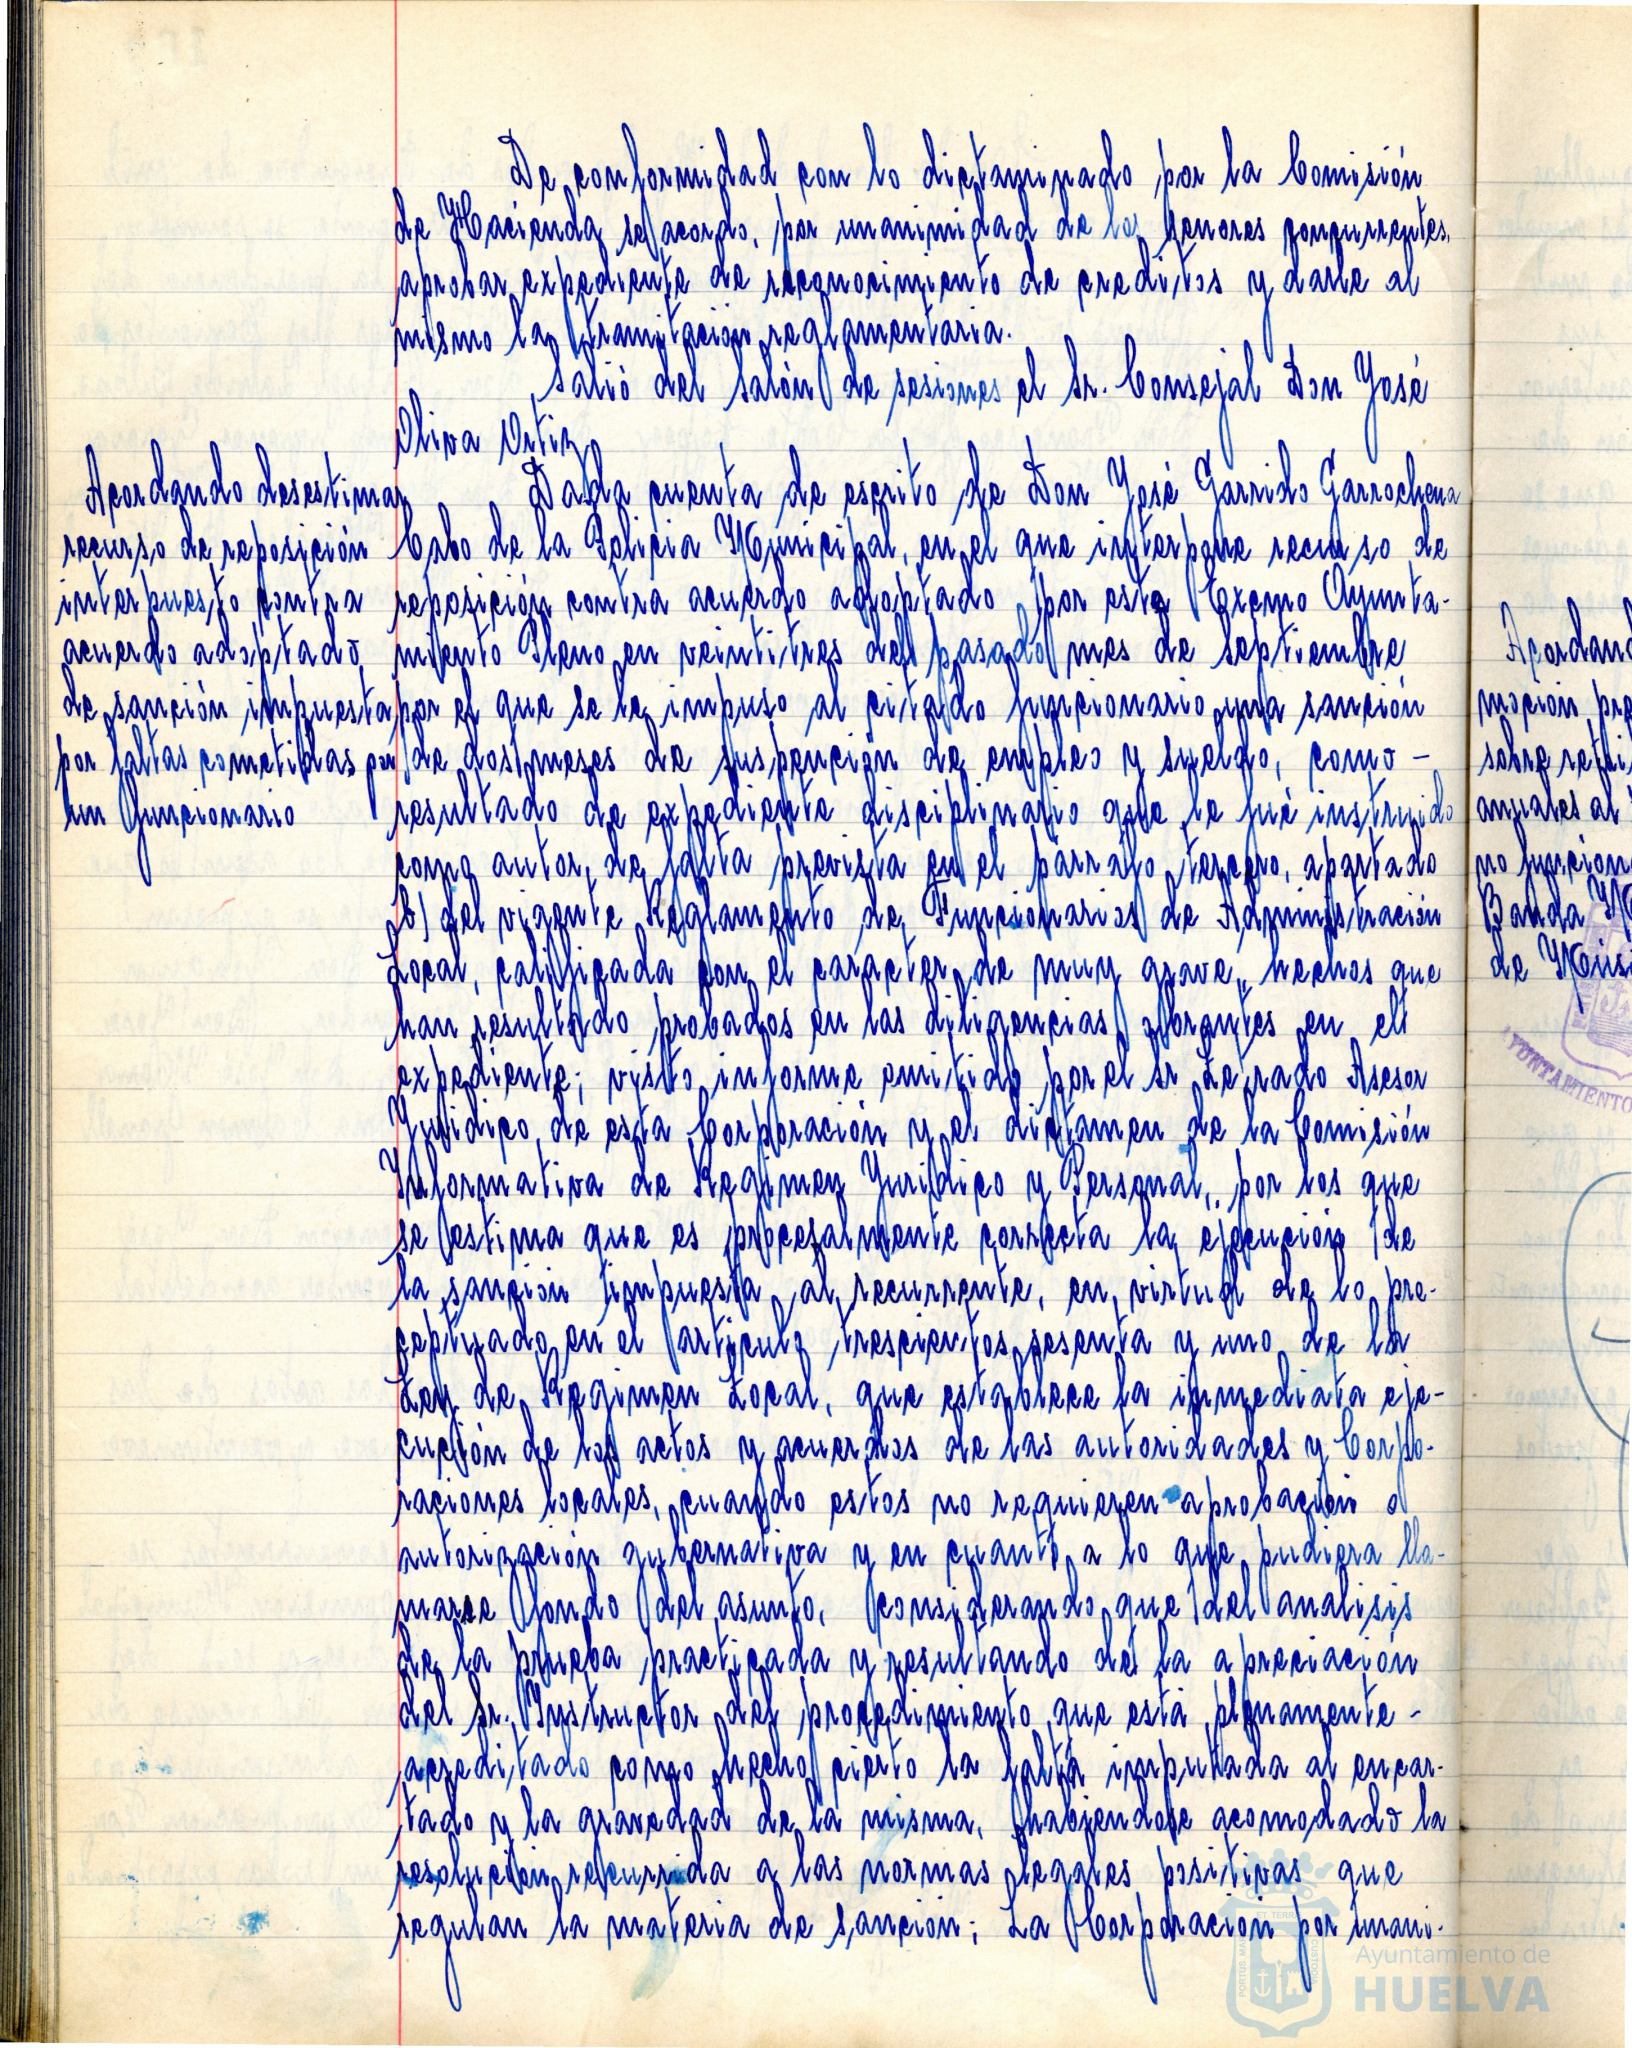 De conformidad con lo dictaminado por la Comisión
de Hacienda se acordo, por unanimidad de los señores concurrentes,
aprobar expediente de reconocimiento de creditos y darle al
mismo la tramitación reglamentaria.
Salió del salón de sesiones el Sr. Consejal Don José
Oliva Ortiz
Acordando desestimar
recurso de reposición
interpuesto contra
acuerdo adoptado
de sanción impuesta
por faltas cometidas por
un funcionario
Dada cuenta de escrito de Don José Garrido Garrochena
Cabo de la Policia Municipal, en el que interpone recurso de
reposición contra acuerdo adoptado por este Excmo Ayunta-
miento Pleno en veintitres del pasado mes de septiembre
por el que se le impuso al citado funcionario una sanción
de dos meses de suspención de empleo y sueldo, como -
resultado de expediente disciplinario que le fué instruido
como autor de falta prevista en el párrafo tercero, apartado
b) del vigente Reglamento de Funcionarios de Administración
Local, calificada con el caracter de muy grave, hechos que
han resultado probados en las diligencias obrantes en el
expediente; visto informe emitido por el Sr Letrado Asesor
Juridico de esta Corporación y el dictamen de la Comisión
Informativa de Regimen Juridico y Personal, por los que
se estima que es procesalmente correcta la ejecución de
la sanción impuesta al recurrente, en virtud de lo pre-
ceptuado en el articulo trescientos sesenta y uno de la
Ley de Regimen Local, que establece la inmediata eje-
cución de los actos y acuerdos de las autoridades y Corpo-
raciones locales, cuando estos no requieren aprobación o
autorización gubernativa y en cuanto a lo que pudiera lla-
marse fondo del asunto, considerando que del analisis
de la prueba practicada y resultando de la apreciación
del Sr. Instructor del procedimiento que está plenamente -
acreditado como hecho cierto la falta imputada al encar-
tado y la gravedad de la misma, habiendose acomodado la
resolución recurrida a las normas legales positivas que
regulan la materia de sanción; La Corporación por unani-
Acordand
moción pre
sobre retri
anuales al
no funcion
Banda M
de Músi
AYUNTAMIENTO
Ayuntamiento de
HUELVA